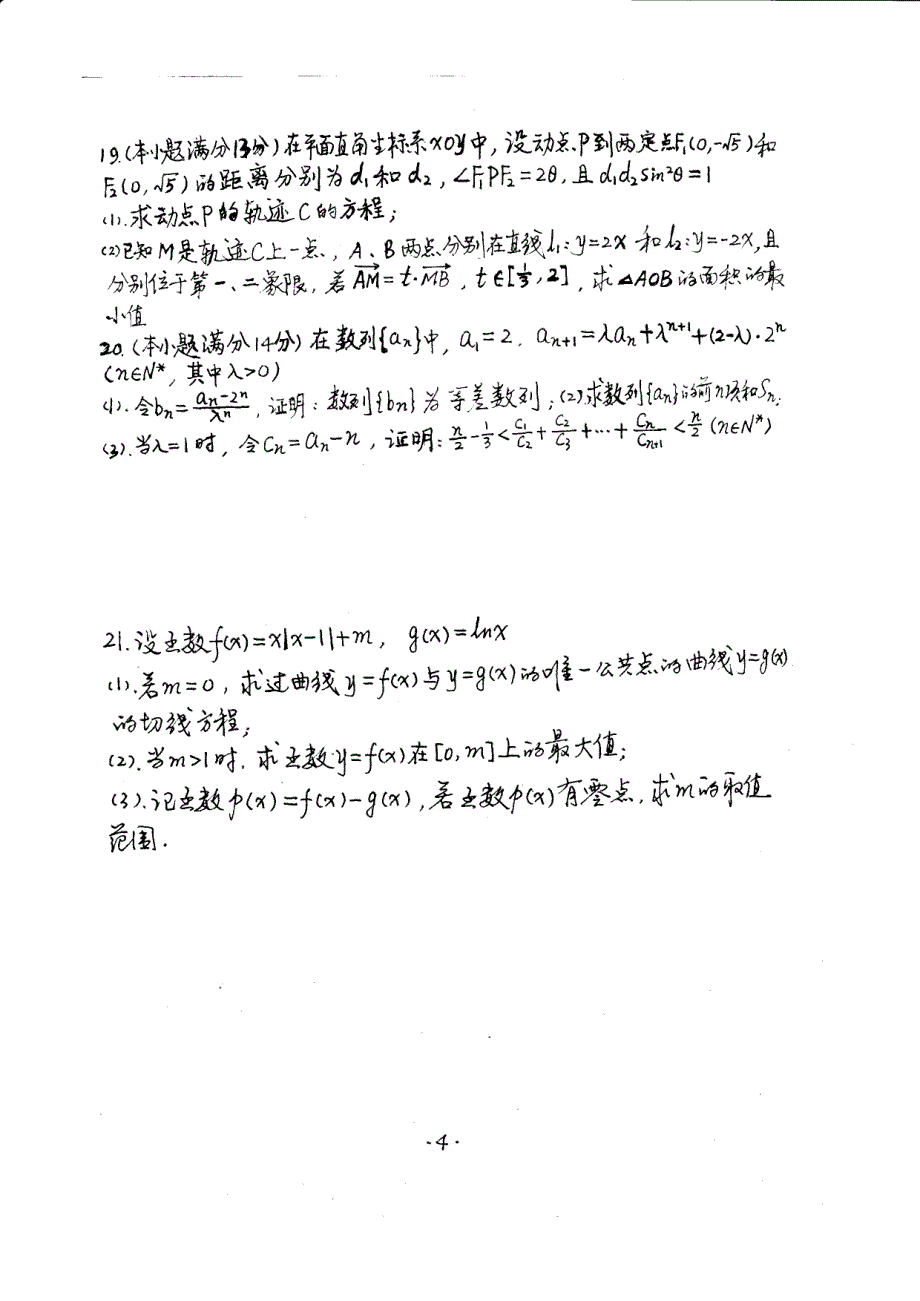 19.(本小题满分13分)在平面直角坐标系xOy中,设动点P到两定点F₁(0,-√5)和
F₂(0,√5)的距离分别为d₁和d₂,∠F₁PF₂=2θ,且d₁d₂sin²θ=1
(1).求动点P的轨迹C的方程;
(2)已知M是轨迹C上一点,A、B两点分别在直线l₁:y=2x和l₂:y=-2x,且
分别位于第一、二象限,若AM→=t·MB→,t∈[1/3,2],求△AOB的面积的最
小值
20.(本小题满分14分)在数列{aₙ}中,a₁=2,aₙ₊₁=λaₙ+λⁿ⁺¹+(2-λ)·2ⁿ
(n∈N*,其中λ>0)
(1).令bₙ=(aₙ-2ⁿ)/λⁿ,证明:数列{bₙ}为等差数列;(2)求数列{aₙ}的前n项和Sₙ;
(3).当λ=1时,令Cₙ=aₙ-n,证明:n/2-1/3<C₁/C₂+C₂/C₃+···+Cₙ/Cₙ₊₁<n/2(n∈N*)
21.设函数f(x)=x|x-1|+m,g(x)=lnx
(1).若m=0,求过曲线y=f(x)与y=g(x)的唯一公共点的曲线y=g(x)
的切线方程;
(2).当m>1时,求函数y=f(x)在[0,m]上的最大值;
(3).记函数p(x)=f(x)-g(x),若函数p(x)有零点,求m的取值
范围.
·4·